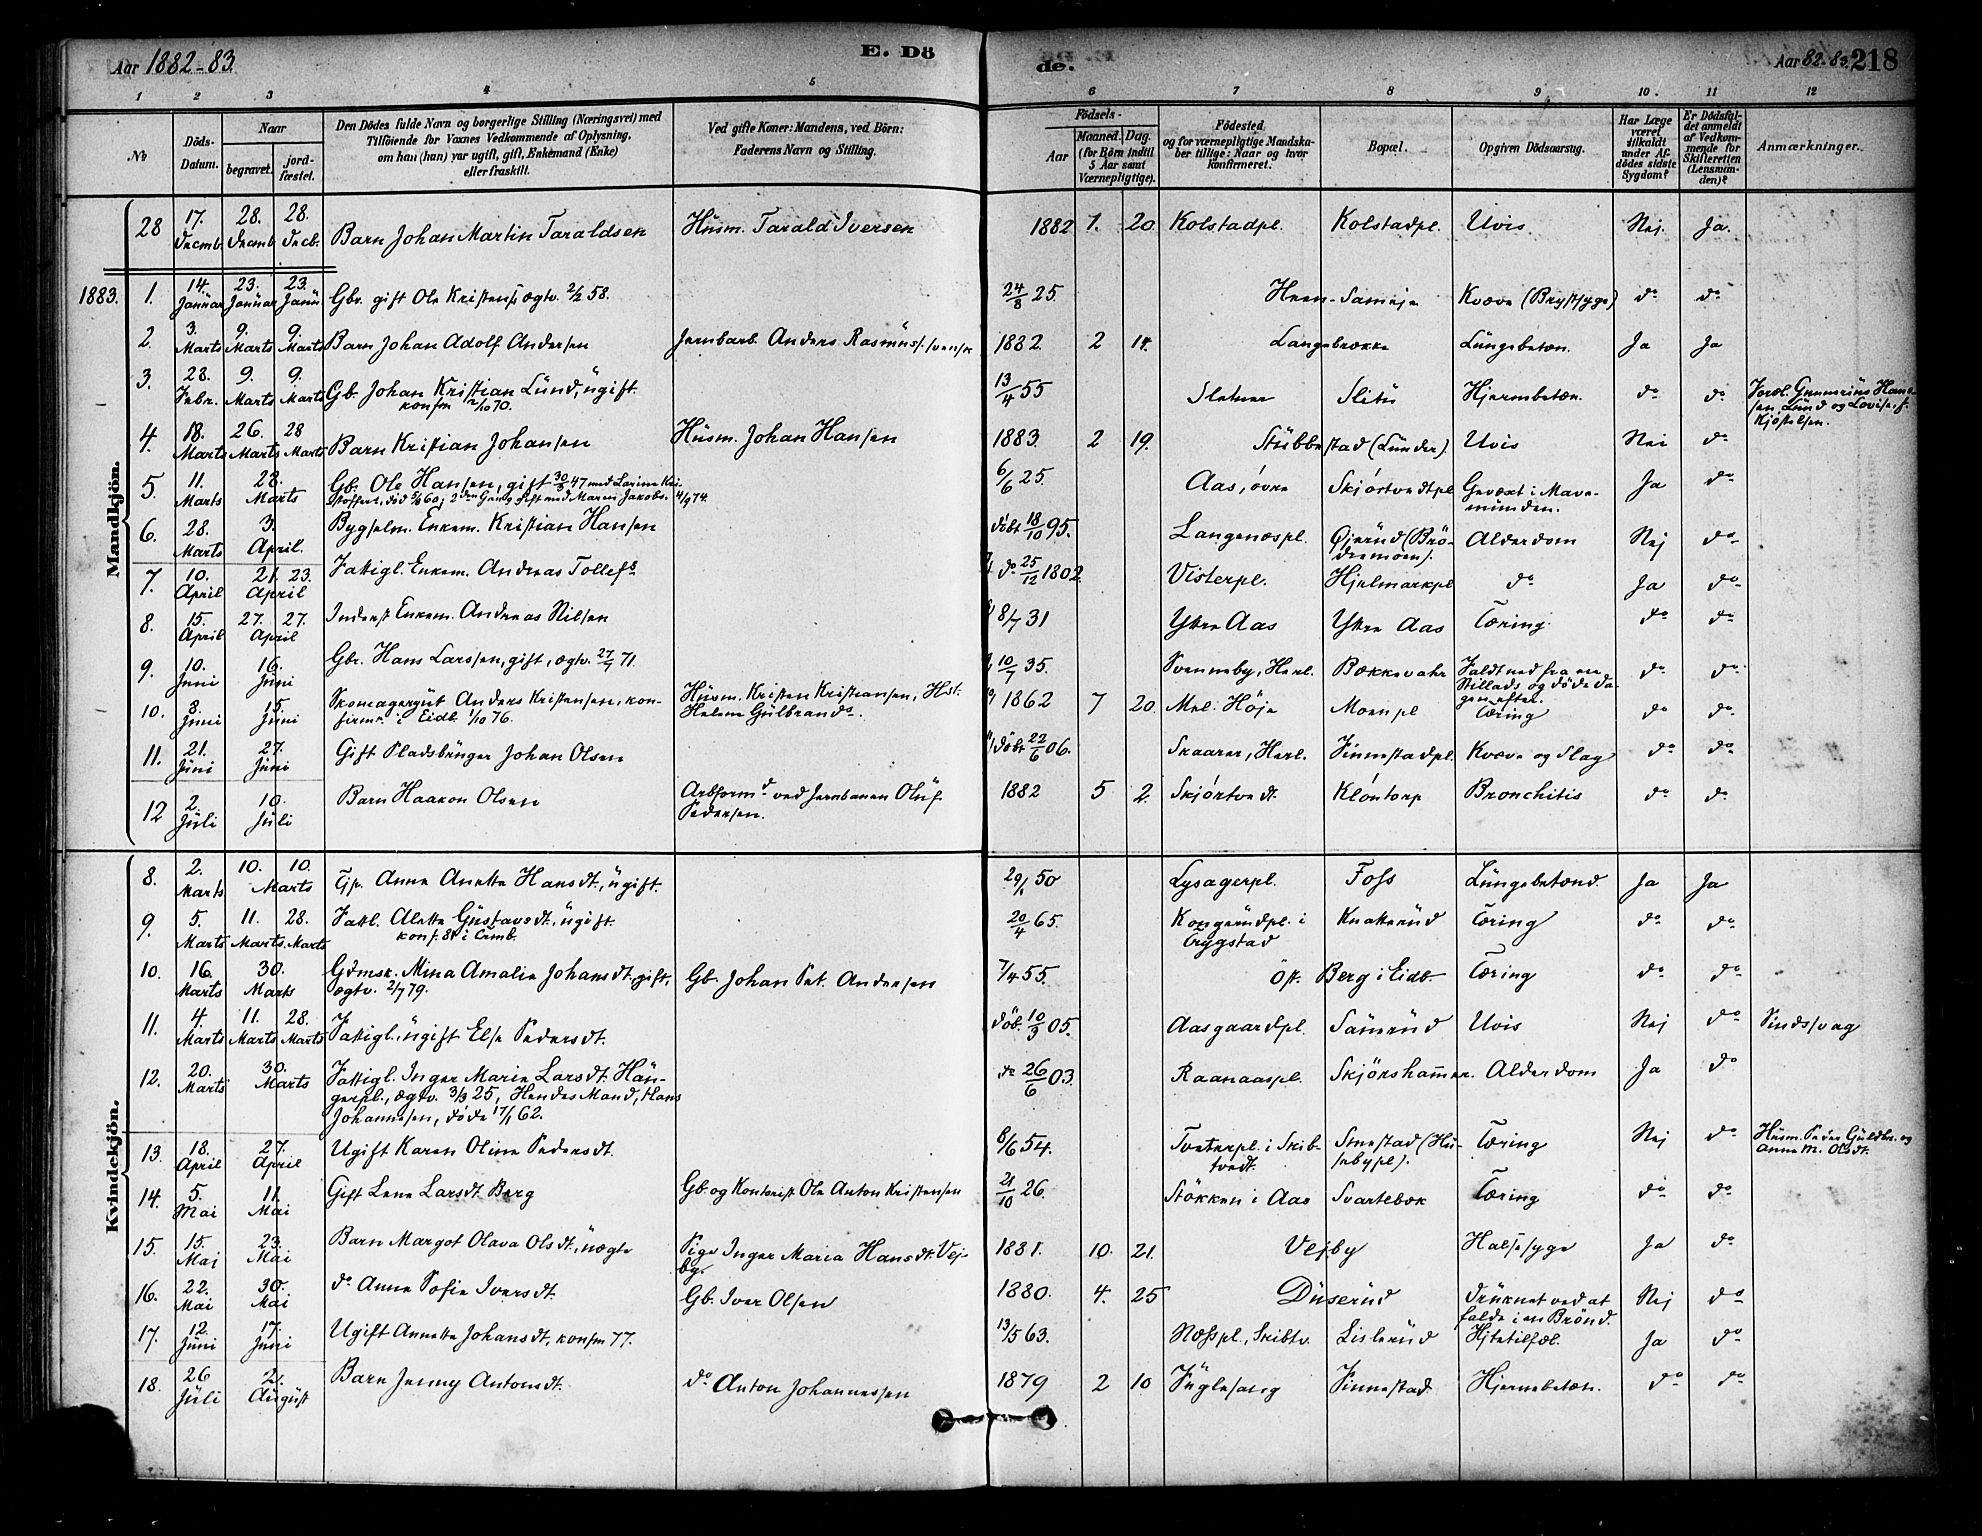 Aar 1882-83. E. Dö
de. Aar 82-83. 218
1 2 3 4 5 6 7 8 9 10. 11 12
No
Döds-Datum.
Naar
begravet.
jord-fæstet.
Den Dödes fulde Navn og borgerlige Stilling (Næringsvei) med
Tilföiende for Voxnes Vedkommende af Oplysning,
om han (hun) var ugift, gift, Enkemand (Enke)
eller fraskilt.
Ved gifte Koner: Mandens, ved Börn:
Faderens Navn og Stilling.
Födsels-
Aar
Maaned. Dag.
(for Börn indtil
5 Aar samt
Værnepligtige).
Födested,
og for værnepligtige Mandska-
ber tillige: Naar og hvor
konfirmeret.
Bopæl.
Opgiven Dödsaarsag.
Har Læge
været
tilkaldt
under Af-
dödes sidste
Sygdom?
Er Dödsfal-
det anmeldt
af Vedkom-
mende for
Skifteretten
(Lensman-
den)?
Anmærkninger.
Mandkjön.
28 17. Decmb. 28. Decmb. 28. Decb. Barn Johan Martin Taraldsen Husm. Tarald Iversen 1882 1. 20. Kolstadpl. Kolstadpl. Uvis Nej. Ja.
1883. 1. 14. Januar 23. Januar 23. Janu Gbr. gift Ole Kristens. ægtv. 2/2 58. 24/8 25. Hven-Sameje Kræve (Brystsyge) do do
2. 3. Marts 9. Marts 9. Marts Barn Johan Adolf Andersen Jernbarb. Anders Rasmuss. svensk 1882. 2 14. Langebrække Lungebetæn. Ja Ja
3. 28. Febr. 9. Marts 9. Marts Gb. Johan Kristian Lund, ugift.
konfm 2/10 70. 13/4 55 Sletner Slitu Hjernebetæn. do do Foræl. Gunnerius Han-
sen Lund og Lovise f.
Kjöstelsen.
4. 18. Marts 26. Marts 28 Marts Barn Kristian Johansen Husm. Johan Hansen 1883. 2 19. Stubbestad (Lunder) Uvis Nei do
5. 11. Marts 28. Marts Gb. Ole Hansen, gift 30/3 47 med Larine Kri-
stoffersd., död 5/8 60; 2den Gang gift med Maren Jakobs. 4/9 74. 6/6 25. Aas, övre Skjörtvedtpl Gevæxt i Mave-
munden. Ja do
6. 28. Marts 3. April. Bygselm. Enkem. Kristian Hansen döbt 18/10 95. Langenæspl. Gjerud (Brö-
demoen). Alderdom Nej do
7. 10. April 21. 23. April Fattigl. Enkem. Andreas Tollefs. do 25/12 1802. Visterpl. Hjelmarkpl do Ja do
8. 15. April 27. 27. April Inderst Enkem. Andreas Nilsen 8/7 31 Ytre Aas Ytre Aas Tæring do do
9. 10. Juni 16. Juni Gbr. Hans Larssen, gift, ægtv. 27/7 71. 10/7 35. Svenneby, Herl. Bækkevahr Faldt ned fra en
Stillads og döde Da-
gen efter. do do
10. 3. Juni 15. Juni Skomagergut Anders Kristensen, kon-
firm. i Eidb. 1/10 76. Husm. Kristen Kristiansen, Hst.
Helene Gulbrandsd. 1862 7 20. Mel. Höje Moenpl Tæring do do
11. 21. Juni 27. Juni Gift Pladsbruger Johan Olsen döbt 22/6 06. Skaarer, Herl. Finnestadpl. Kræve og Slag do do
12 2. Juli 10. Juli Barn Haakon Olsen Arbform.d ved Jernbanen Oluf
Pedersen. 1882 5 2. Skjörtvedt Klöntorp Bronchitis do do
Kvindekjön.
8. 2. Marts 10. 10. Marts Tjp. Anne Anette Hansdt., ugift. 29/1 50 Lysagerpl. Foss Lungebetænd. Ja Ja
9. 5. Marts 11. Marts 28. Marts Fattl. Alette Gustavsdt., ugift.
konf. 81 i Trmb. 20/4 65. Kongerudpl. i
Trygstad Knatterud Tæring do do
10. 16. Marts 30. Marts Gdmsk. Mina Amalie Johansdt., gift,
ægtv. 2/7 79. Gb. Johan Pet. Andersen 7/4 55. Öst. Berg i Eidb. Tæring do do
11. 4. Marts 11. Marts 28. Marts Fattigl. ugift Else Pedersdt. döb. 10/3 05. Aasgaardpl. Sämerud Uvis Nej do Sindssvag
12. 20. Marts 30. Marts Fattigl. Inger Marie Larsdt. Hun-
gerpl., ægtv. 3/3 25, Hendes Mand, Hans
Johannesen, döde 17/1 62. do 26/6 03. Raanaaspl. Skjörshammer. Alderdom Ja do
13. 18. April 27. April Ugift Karen Oline Pedersdt. 8/6 54. Tveterpl. i Skib-
tvedt. Smestad (Hu-
sebypl). Tæring Nej do Husm. Peder Guldbr. og
Anne M. Olsdt.
14. 5. Mai 11. Mai Gift Lene Larsdt. Berg Gb og Kontorist Ole Anton Kristensen 21/10 26. Stökken i Aas Svartebæk Tæring do do
15. 15. Mai 23. Mai Barn Margot Olava Olsdt., uægte Pige Inger Maria Hansdt. Vej-
by. 1881. 10. 21. Vejby Halssyge Ja do
16. 22. Mai 30. Mai do Anne Sofie Iversdt. Gb. Iver Olsen 1880. 4. 25 Duserud Druknet ved at
falde i en Brönd. Nej do
17. 12. Juni 17. Juni Ugift Annette Johansdt, konfm 77. 13/5 63. Næsspl., Skibtv. Lislerud Ja do
18. 26 Juli 2. August Barn Jenny Antonsdt. do Anton Johannessen 1879 2 10 Fuglesang Finnestad Hjernebetæn. do do